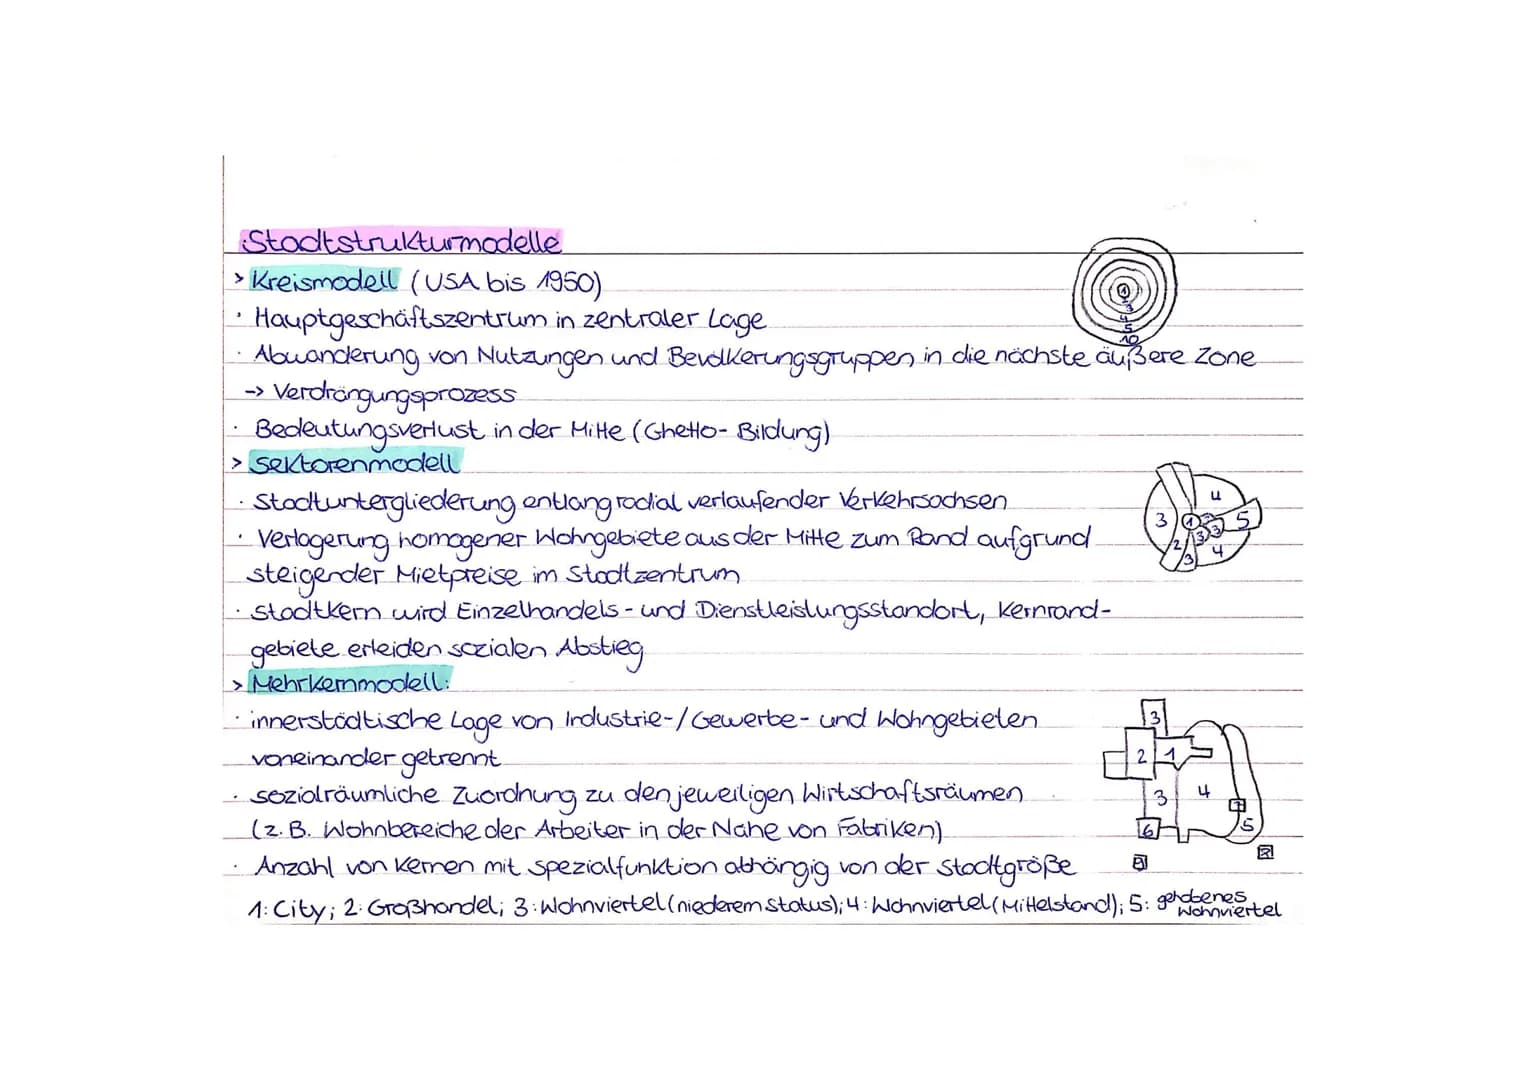 Stadtstrukturmodelle
> Kreismodell (USA bis 1950)
· Hauptgeschäftszentrum in zentraler Lage
· Abwanderung von Nutzungen und Bevölkerungsgruppen in die nächste äußere Zone
-> Verdrängungsprozess
· Bedeutungsverlust in der Mitte (Ghetto-Bildung)
> Sektorenmodell
· Stadtuntergliederung entlang radial verlaufender Verkehrsachsen
· Verlagerung homogener Wohngebiete aus der Mitte zum Rand aufgrund
steigender Mietpreise im Stadtzentrum
· Stadtkern wird Einzelhandels- und Dienstleistungsstandort, Kernrand-
gebiete erleiden sozialen Abstieg
> Mehrkernmodell:
· innerstädtische Lage von Industrie-/Gewerbe- und Wohngebieten
voneinander getrennt
· sozialräumliche Zuordnung zu den jeweiligen Wirtschaftsräumen
(z.B. Wohnbereiche der Arbeiter in der Nähe von Fabriken)
· Anzahl von Kernen mit Spezialfunktion abhängig von der Stadtgröße
1: City; 2: Großhandel; 3: Wohnviertel (niederem Status); 4: Wohnviertel (Mittelstand); 5: gehobenes Wohnviertel
1
2
3
4
5
10
4
3
1
5
3
2
3
4
3
2
1
3
4
7
6
5